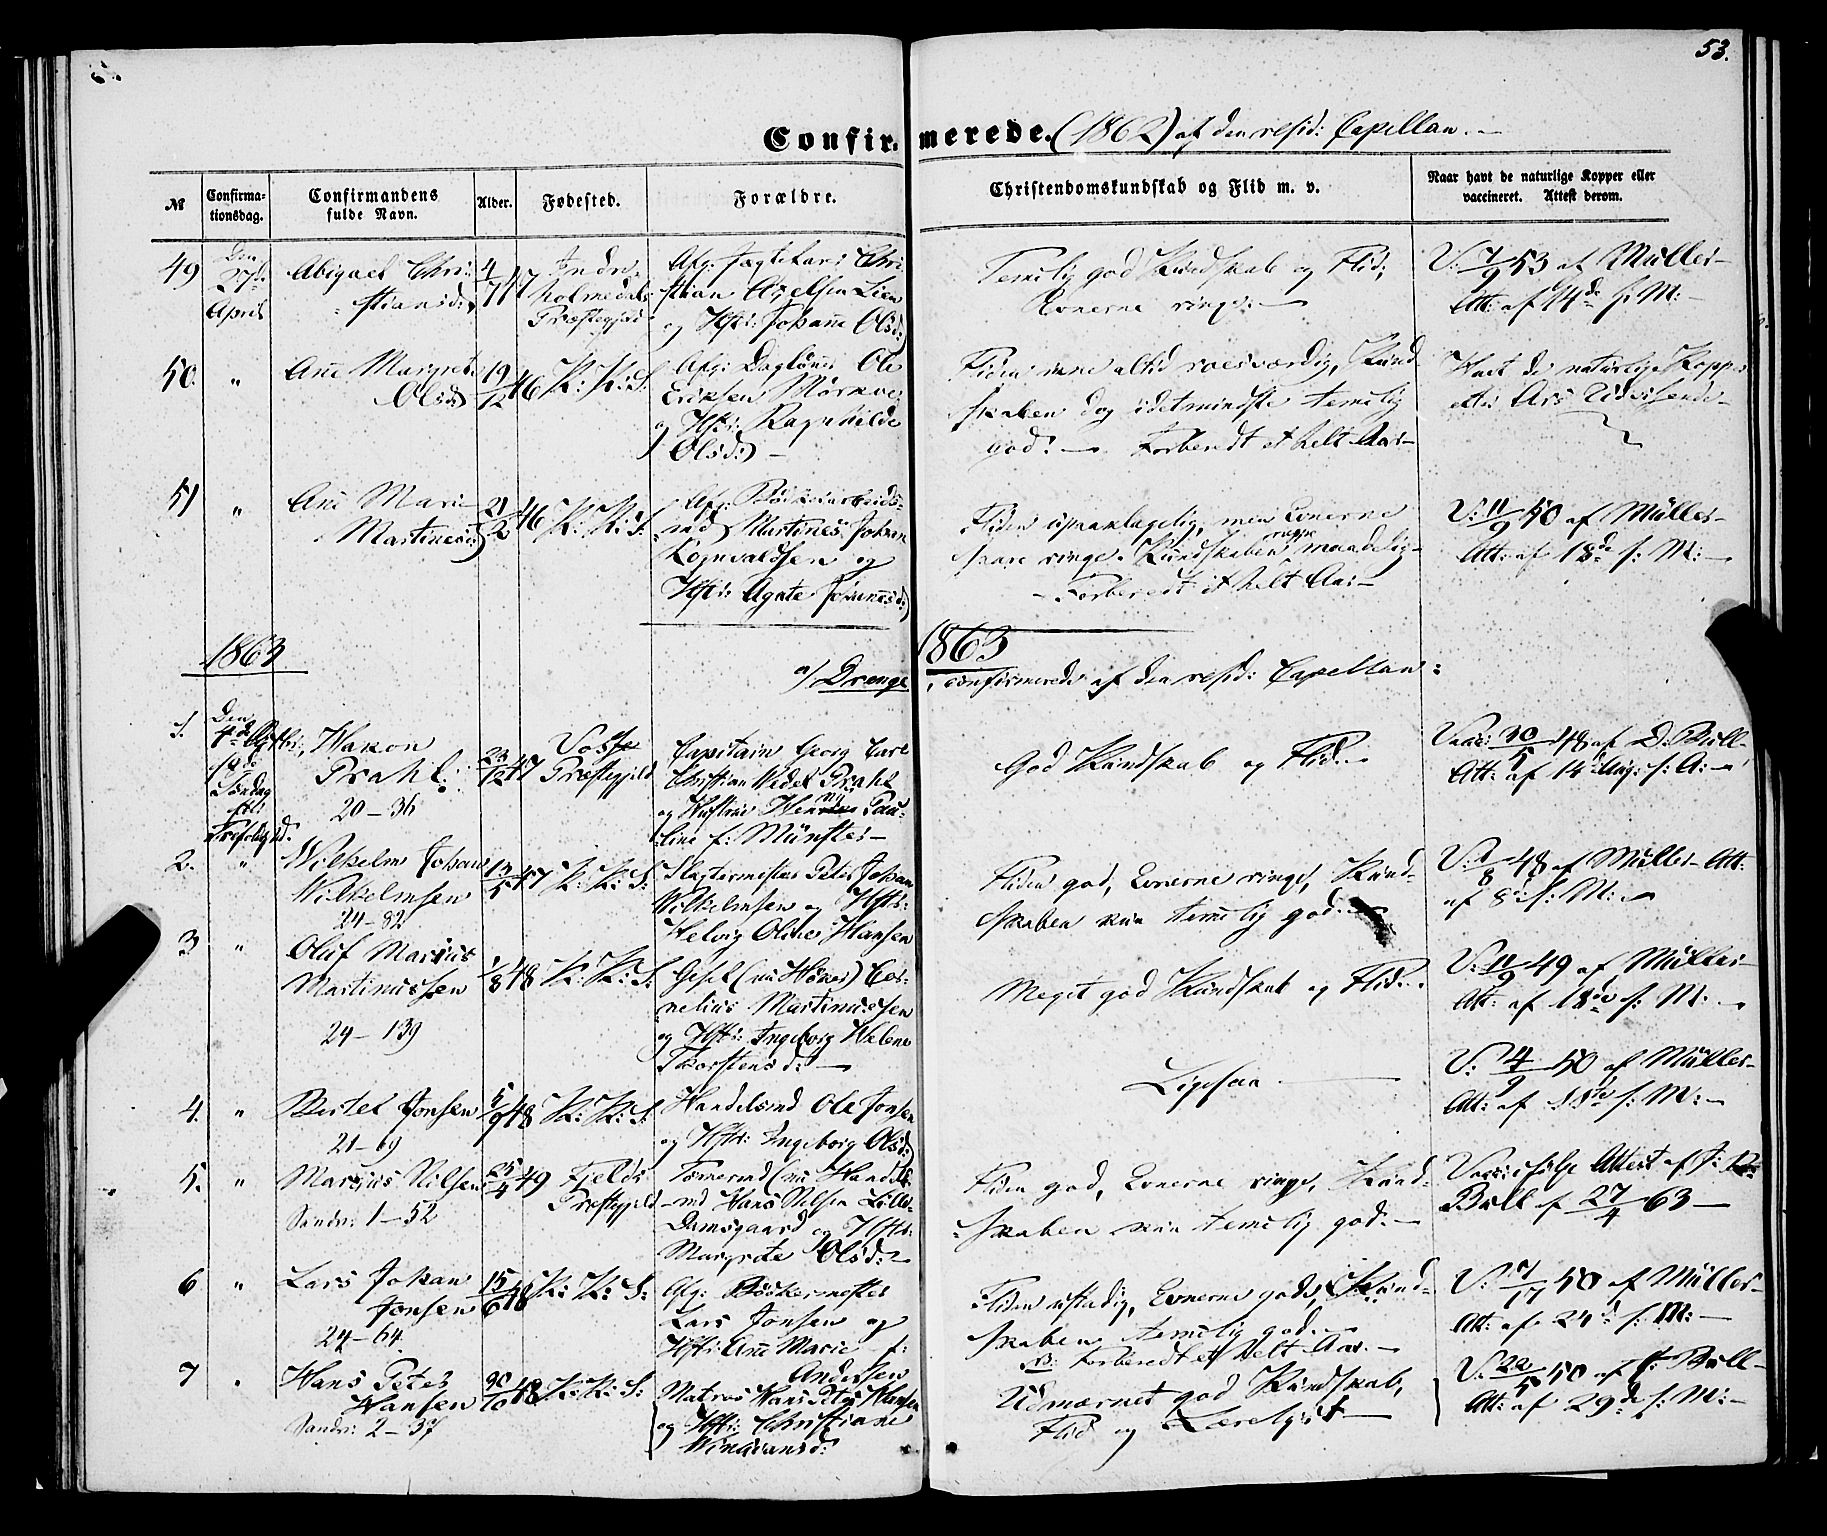 53.
Confirmerede. (1862) af den resid: Capellan.
№
Confirmationsdag.
Confirmandens fulde Navn.
Alder.
Fødested.
Forældre.
Christendomskundskab og Flid m. v.
Naar havt de naturlige Kopper eller vaccineret. Attest derom.
49
Den 27de April
Abigael Christiansd:
4/7 47
Indre Holmedals Præstegjeld
Afg: Jægtekarl Christian Axelsen Lien
og Hstr: Johanne Olsd:
Temelig god Kundskab og Flid;
Evnerne ringe.
V: 7/9 53 af Müller
Att: af 14de s: M:
50.
"
Ane Margrete Olsd:
19/12 46
K: K: S:
Afg: Dagløner Ole
Eriksen Mörkve
og Hstr: Ragnhilde
Olsd:
Fliden ikke altid roesværdig, Kund-
skaben dog idetmindste temelig
god. Forberedt et helt Aar
Havt de naturlige Kopper
efter Ars Udvisende
51
"
Ane Marie
Martinesd:
21/2 46
K: K: S:
Afg: Bödkerarbeids-
md Martines Johan
Rognvaldsen og
Hstr: Agate Johannesd:
Fliden upaaklagelig, men Evnerne
svare ringe. Kundskaben maadelig
Forberedt et helt Aar
V: 11/9 50 af Müller
Att: af 18de s: M:
1863
1863
a) Drenge, confirmerede af den resid: Capellan:
1.
Den 4de Octbr: 18de Søndag eft: Trefoldighd.
Hakon
Prahl.
20 - 36
23/12 47
Voss Præstegjeld
Capitain Georg Carl
Christian Wedel Prahl
og Hustrue Henny Pau-
line f: Münster
God Kundskab og Flid.
Vacc: 30/5 48 af D: Bull
Att: af 14 Aug: s: A:
2.
"
Wilhelm Johan
Wilhelmsen
24 - 82
13/5 47
K: K: S:
Slagtermester Peter Johan
Wilhelmsen og Hstr:
Helvig Oline Hansen
Fliden god, Evnerne ringe, Kund-
skaben kun temelig god.
V: 1/8 48 af Müller Att:
af 8de s: M:
3
"
Oluf Marius
Martinussen
24 - 139
1/8 48
K: K: S:
Gesel (nu Höker) Cor-
nelius Martinussen
og Hstr: Ingeborg Helene
Thorstensd:
Meget god Kundskab og Flid.
V: 11/9 49 af Müller
Att: af 18de s: M:
4.
"
Bertel Jonsen
21 - 69
5/9 48
K: K: S:
Handelsmd Ole Jonsen
og Hstr: Ingeborg Olsd:
Ligesaa
V: 4/9 50 af Müller
Att: af 11te s: M:
5.
"
Marius Nilsen
Sandv: 1 - 52
25/4 49
Fjelds Præstegjeld
Tømermd (nu Handels-
md Hans Nilsen Lille-
Damsgaard og Hstr:
Margrete Olsd:
Fliden god, Evnerne ringe, Kund-
skaben kun temelig god.
Vacc: ifølge Attest af J:
Bull af 27/4 63
6
"
Lars Johan
Jonsen
24 - 64.
15/6 48
K: K: S:
Afg: Bödkermester
Lars Jonsen og
Hstr: Ane Marie f:
Andersen
Fliden ustadig, Evnerne gode, Kund-
skaben temelig god.
NB: Forberedt et helt Aar.
V: 17/ 50 af Müller
Att: af 24de s: M:
7
"
Hans Peter
Hansen
Sandv: 2 - 37
30/10 48
K: K: S:
Matros Hans Peter Hansen
og Hstr: Christiane
Udmærket god Kundskab,
Flid og Lærelyst
V: 22/5 50 af J: Bull
Att: af 29de s: M: